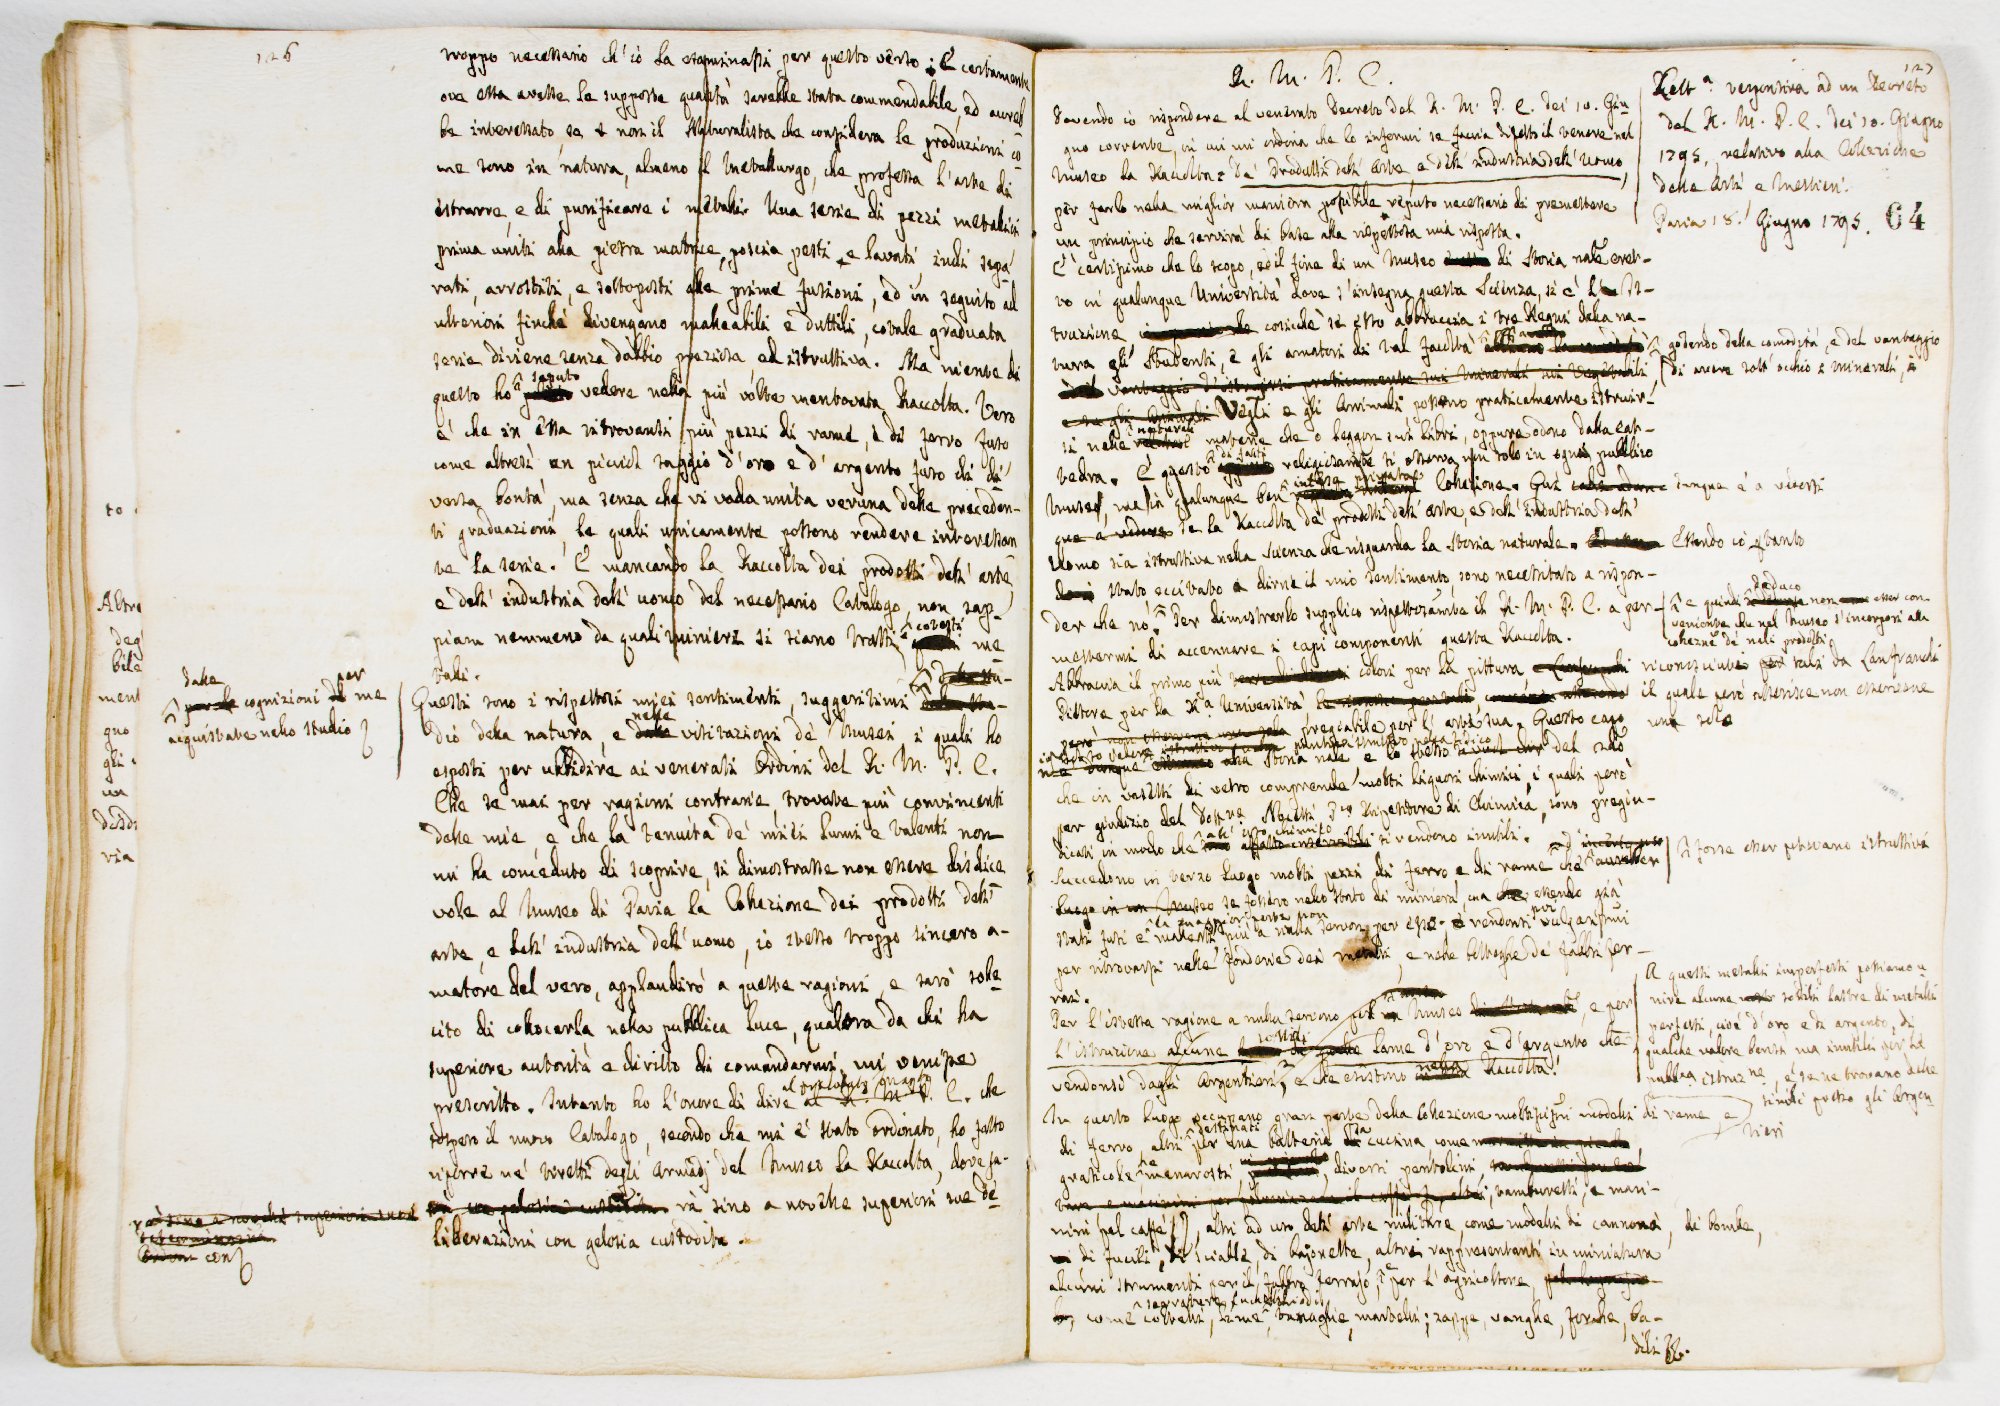 126
troppo necessario ch'io la esaminassi per questo verso; E certamente
ove essa avesse le supposte qualità sarebbe stata commendabile, ed avreb
be interessato, se non il Naturalista che considera le produzioni co
me sono in natura, almeno il Metallurgo, che professa l'arte di
istrarre, e di purificare i metalli. Una serie di pezzi metallici
prima uniti alla pietra matrice, poscia pesti, e lavati, indi sepa
rati, arrostiti, e sottoposti alle prime fusioni, ed in seguito ad
ulteriori finchè divengano malleabili e duttili, cotale graduata
serie diviene senza dubbio preziosa, ed istruttiva. Ma niente di
questo ho saputo vedere nella più volte mentovata Raccolta. Vero
è che in essa ritrovansi più pezzi di rame, e di ferro fuso
come altresì un picciol saggio d'oro e d'argento fuso di di
versa bontà, ma senza che vi vada unita veruna delle preceden-
ti graduazioni, le quali unicamente possono rendere interessan
te la serie. E mancando la Raccolta dei prodotti dell'arte,
e dell'industria dell'uomo del necessario Catalogo, non sap-
piam nemmeno da quali miniere si siano tratti cotesti me
talli.
Questi sono i rispettosi miei sentimenti, suggeritimi dallo stu-
dio della natura, e nelle visitazioni de' Musei i quali ho
esposti per ubbidire ai venerati Ordini del R. M. P. C.
Che se mai per ragioni contrarie, trovate più convincenti
delle mie, e che la tenuità de' miei lumi e talenti non
mi ha conceduto di scoprire, si dimostrasse non essere disdice
vole al Museo di Pavia la Collezione dei prodotti dell'
arte, e dell'industria dell'uomo, io stesso troppo sincero a-
matore del vero, applaudirò a queste ragioni, e sarò solle
cito di collocarla nella pubblica luce, qualora da chi ha
superiore autorità e diritto di comandarmi, mi venisse
prescritto. Intanto ho l'onore di dire al R. M. P. C. che
sospeso il nuovo Catalogo, secondo che mi è stato ordinato, ho fatto
riporre ne' tiretti degli armadj del Museo la Raccolta, dove sa-
rà sino a novelle superiori sue de
liberazioni con gelosia custodita.
dalle
cognizioni per me
acquistate nello studio
con
127
R. M. P. C.
Dovendo io rispondere al venerato Decreto del R. M. P. C. dei 10. Giu
gno corrente, in cui mi ordina che lo informi se faccia difetto il tenere nel
Museo la Raccolta: De' Prodotti dell'arte e dell'industria dell'Uomo,
per farlo nella miglior maniera possibile reputo necessario di premettere
un principio che servirà di base alla rispettosa mia risposta.
E' certissimo che lo scopo, ed il fine di un Museo di Storia nale eret-
to in qualunque Università dove s'insegna questa Scienza, si è l'Is-
truzione cosicchè se esso abbraccia i tre Regni della na-
tura gli Studenti, e gli amatori di tal facoltà
vantaggio d'istruirsi praticamente sui minerali, sui Vegetabili,
Vegli e gli Animali possono praticamente istruir-
si nelle naturali materie che o leggon sui libri, oppure odono dalla cat-
tedra. E questo di fatti religiosamte si osserva non solo in ogni pubblico
Museo, ma in qualunque ben intesa privata Collezione. Qui dunque è a vedersi
se la Raccolta de' prodotti dell'arte, e dell'industria dell'
Uomo sia istruttiva nella Scienza che risguarda la Storia naturale. Essendo io pertanto
stato eccitato a dirne il mio sentimento, sono necessitato a rispon-
der che nò. Per dimostrarlo supplico rispettosamte il R. M. P. C. a per-
mettermi di accennare i capi componenti questa Raccolta.
Abbraccia il primo più colori per la pittura, riconosciuti per tali da Lanfranchi
Pittore per la Ra. Università, il quale però asserisce non essersene
una sola pregiabile per l'arte sua. Questo capo
alla Storia nale e lo stesso del solo
che in vasetti di vetro comprende molti liquori chimici, i quali però
per giudizio del Dottre Nocetti Pro Ripetitore di Chimica, sono pregiu-
dicati in modo che all'uso chimico si rendono inutili.
Succedono in terzo luogo molti pezzi di ferro e di rame che
se fossero nello stato di miniera, ma essendo già
stati fusi
per ritrovarsi nelle fonderie dei metalli, e nelle botteghe de' fabbri fer-
rari.
Per l'istessa ragione a nulla servono pel Museo, e per
l'istruzione alcune sottili lame d'oro e d'argento che
vendonsi dagli Argentieri, e che esistono nella Raccolta!
In questo luogo occupano gran parte della Collezione moltissimi modelli di rame, e
di ferro altri destinati per una batteria da cucina come
graticole, menarosti, diversi pentolini,
tamburetti, e maci-
nini pel caffè, altri ad uso dell'arte militare come modelli di cannoni, di bombe,
di fucili, di sciable, di bajonette, altri rappresentanti in miniatura
alcuni strumenti per il fabbro ferrajo, e per l'agricoltore,
come coltelli, lime, tanaglie, martelli; zappe, vanghe, forche, ba-
dili &.
Relta responsiva ad un Decreto
del R. M. P. C. dei 10. Giugno
1795., relativo alla Collezione
delle Arti e Mestieri.
Pavia 18. Giugno 1795. 64
godendo della comodità, e del vantaggio
di avere sott'occhio i Minerali, i
e quindi deduco non esser con-
veniente che nel Museo s'incorpori alla
collezne di neli prodotti
forse esser potevano istruttivi
A questi metalli imperfetti possiamo u
nire alcune sottili lastre di metalli
perfetti, cioè d'oro e di argento, di
qualche valore bensì ma inutili per la
nulla istruzne, e se ne trovano delle
simili presso gli Argen
tieri
to
Altre
deg
bile
ment
quo
gli
un
via